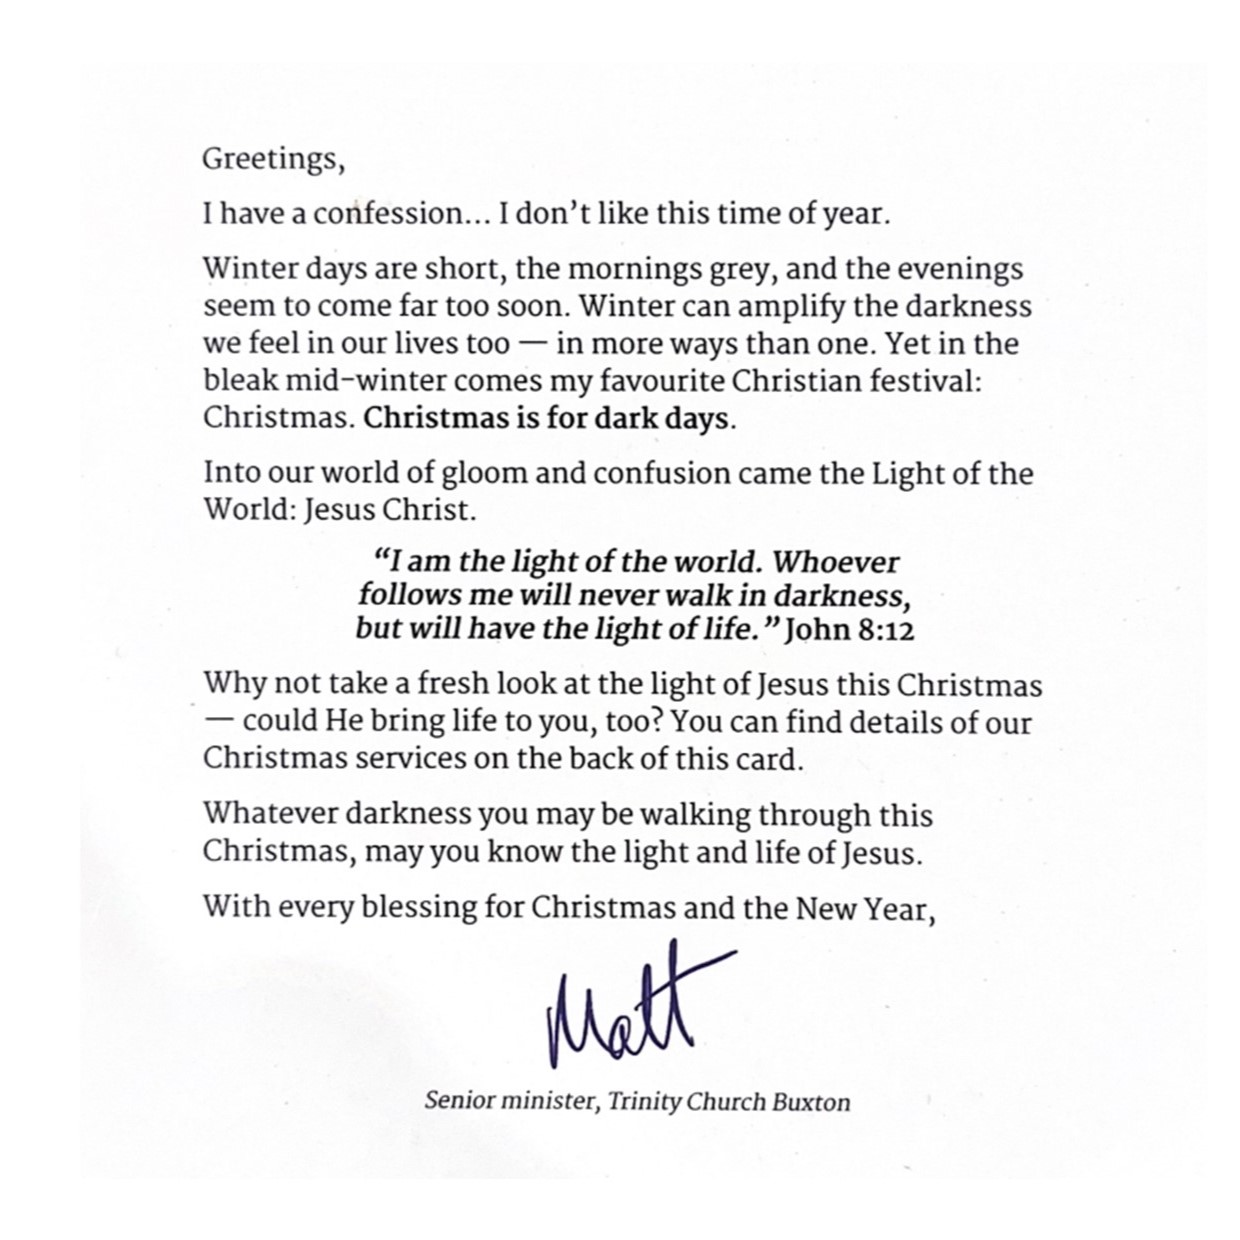 Greetings,
I have a confession... I don’t like this time of year.
Winter days are short, the mornings grey, and the evenings
seem to come far too soon. Winter can amplify the darkness
we feel in our lives too — in more ways than one. Yet in the
bleak mid-winter comes my favourite Christian festival:
Christmas. Christmas is for dark days.
Into our world of gloom and confusion came the Light of the
World: Jesus Christ.
“I am the light of the world. Whoever
follows me will never walk in darkness,
but will have the light of life.” John 8:12
Why not take a fresh look at the light of Jesus this Christmas
— could He bring life to you, too? You can find details of our
Christmas services on the back of this card.
Whatever darkness you may be walking through this
Christmas, may you know the light and life of Jesus.
With every blessing for Christmas and the New Year,
Matt
Senior minister, Trinity Church Buxton